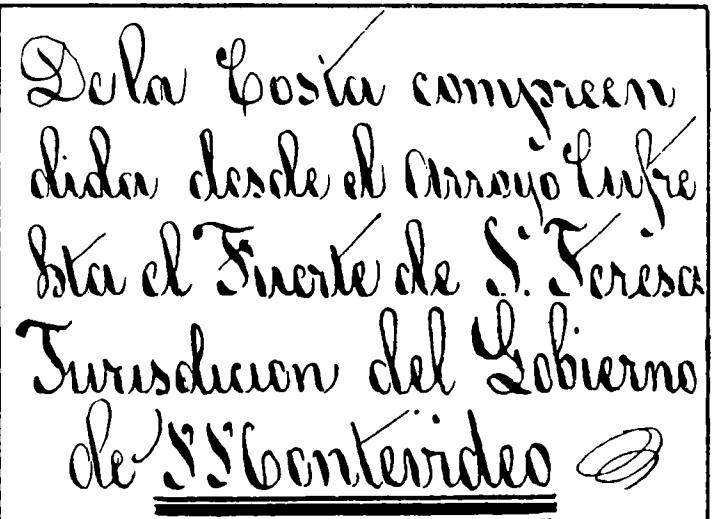 De la Costa compreen
dida desde el arroyo Cufre
hsta el Fuerte de S. Teresa
Jurisdicion del Gobierno
de Montevideo